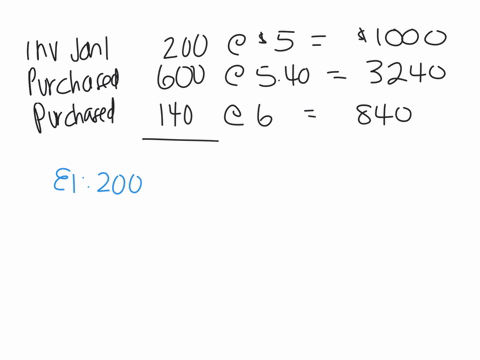 Inv Jan1 200 @ $5 = $1000
Purchased 600 @ 5.40 = 3240
Purchased 140 @ 6 = 840
EI: 200